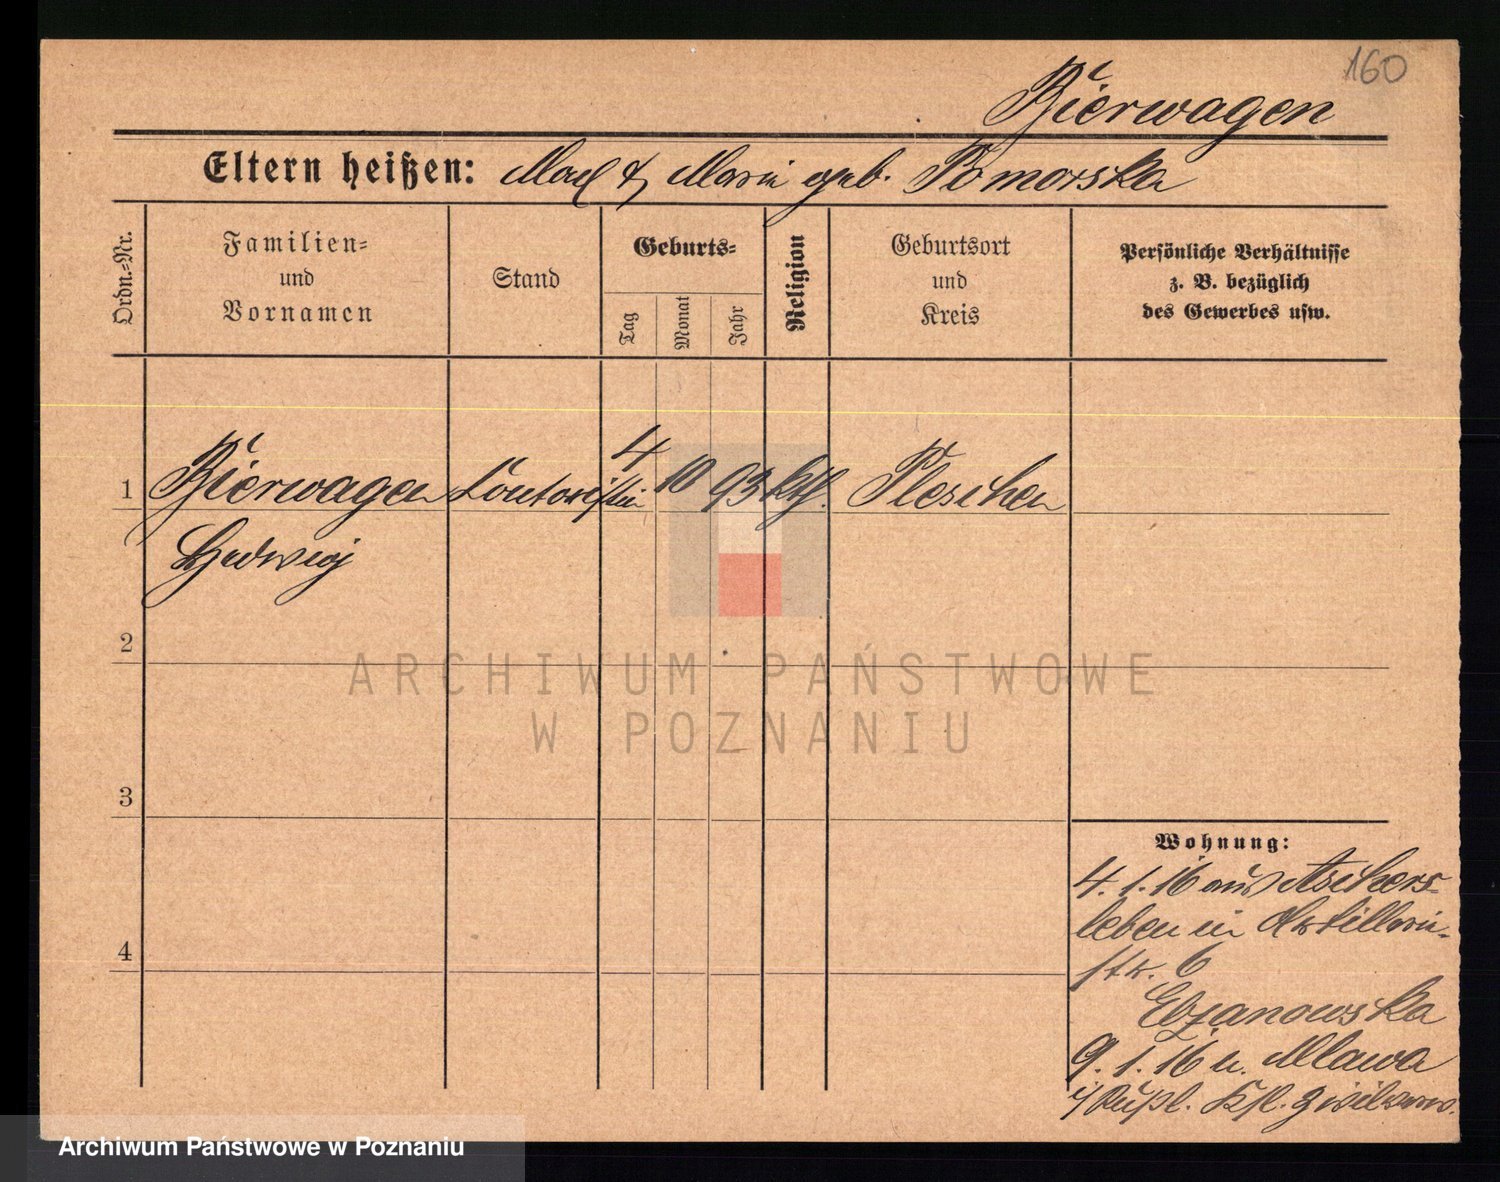 160
Bierwagen
Eltern heißen: Max & Marie geb. Pomorska
Ordn.-Nr.
Familien-
und
Vornamen
Stand
Geburts-
Tag
Monat
Jahr
Religion
Geburtsort
und
Kreis
Persönliche Verhältnisse
z. B. bezüglich
des Gewerbes usw.
1 Bierwagen Contoristin 4 10 93 kth. Pleschen
Hedwig
2
3
4
Wohnung:
4.1.16 aus Aschers-
leben in Artillerie-
str. 6
9.1.16 n. Mlawa
i/Rußl. Zivilverw.
ARCHIWUM PAŃSTWOWE
W POZNANIU
Archiwum Państwowe w Poznaniu